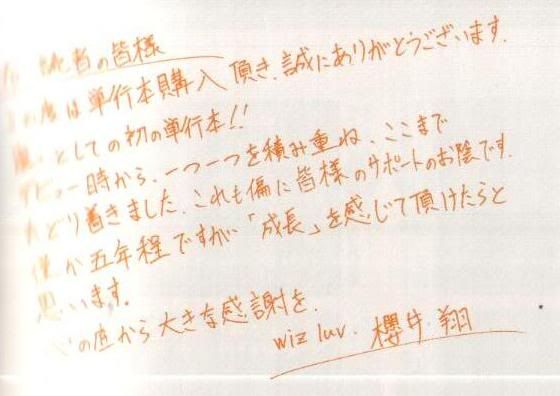 読者の皆様
の度は単行本購入頂き、誠にありがとうございます.
としての初の単行本!!
デビュー時から、一つ一つを積み重ね、ここまで
たどり着きました。これも偏に皆様のサポートのお陰です.
僅か五年程ですが「成長」を感じて頂けたらと
思います。
心の底から大きな感謝を.
wiz luv. 櫻井 翔